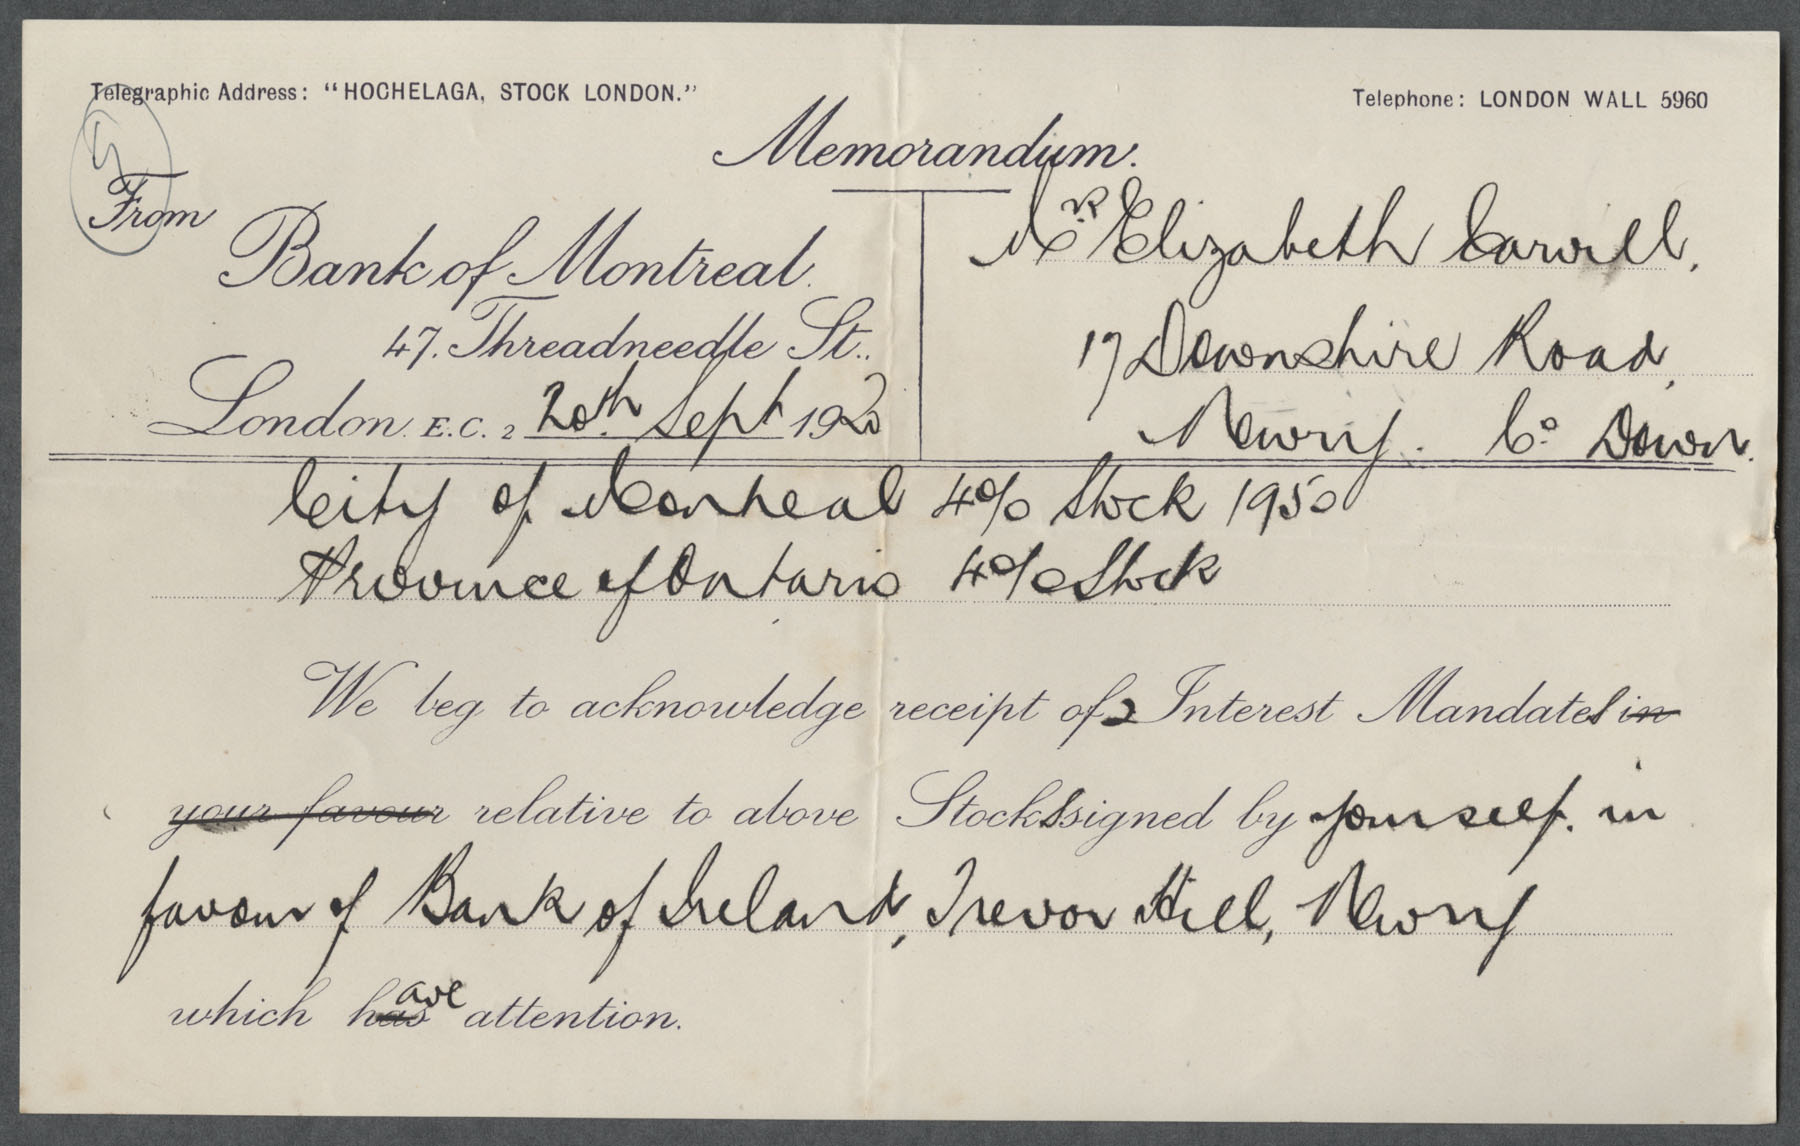 Telegraphic Address: "HOCHELAGA, STOCK LONDON."
Telephone: LONDON WALL 5960
Memorandum.
5
From
Bank of Montreal.
47, Threadneedle St..
London. E.C. 2 20th Sept 1920
Mrs Elizabeth Carvill,
17 Devonshire Road,
Newry. Co Down.
City of Montreal 4% Stock 1950
Province of Ontario 4% Stock
We beg to acknowledge receipt of 2 Interest Mandates in
your favour relative to above Stocks signed by yourself. in
favour of Bank of Ireland, Trevor Hill, Newry
which has ave attention.